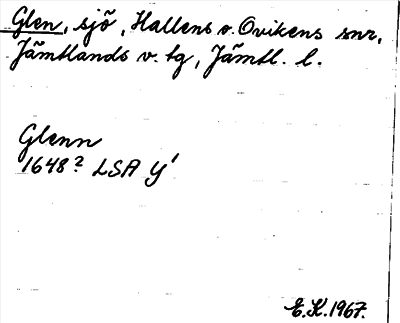 Glen, sjö, Hallens o. Ovikens snr,
Jämtlands v. tg, Jämtl. l.
Glenn
1648? LSA Y'
E.K. 1967.